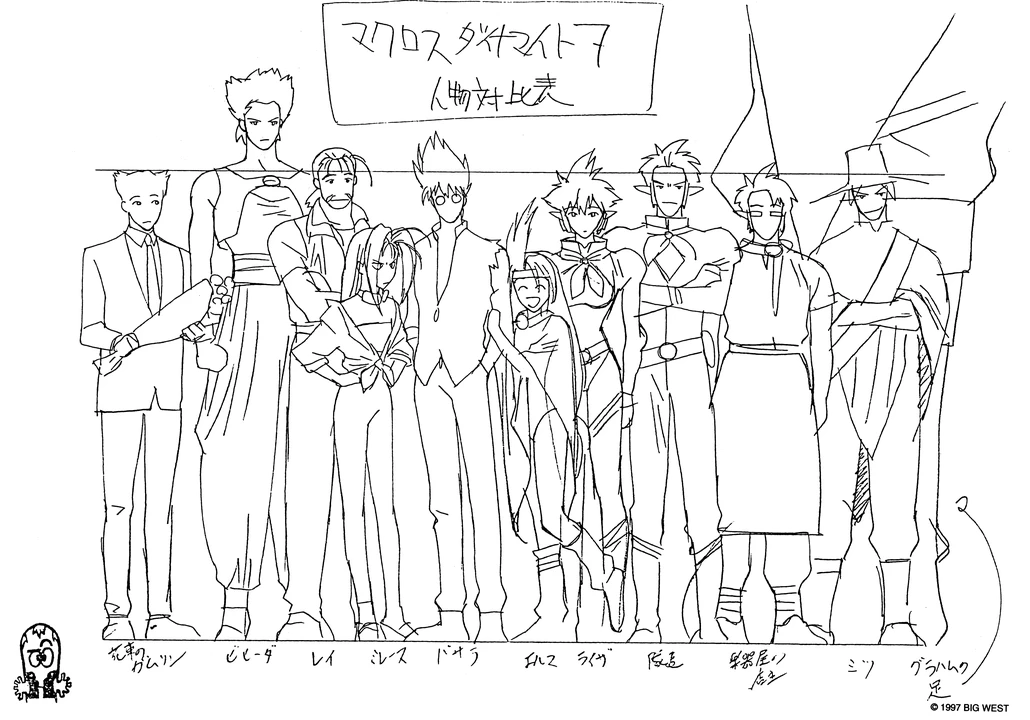 マクロスダイナマイト7
人物対比表
花束の
ガムリン
ビヒーダ
レイ
ミレーヌ
バサラ
エルマ
ライザ
隊長
楽器屋の
店主
ミツ
グラハムの
足
© 1997 BIG WEST